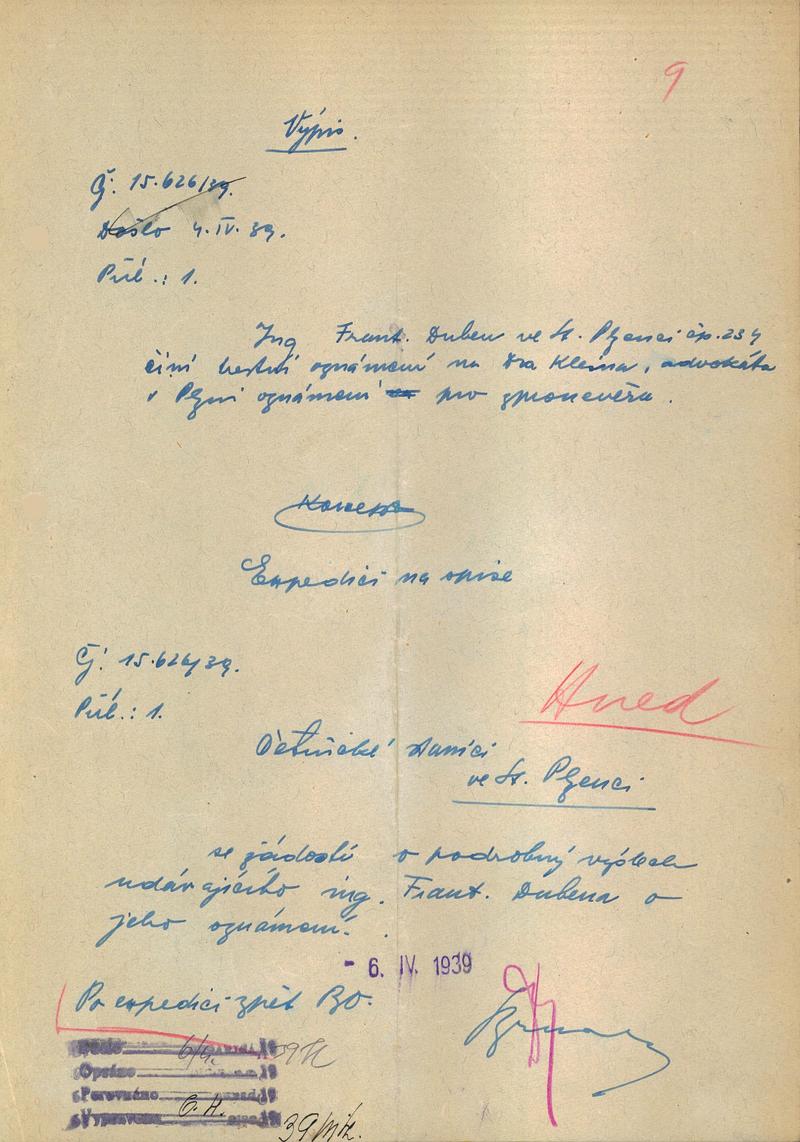 9
Výpis.
Čj. 15.626/39.
Došlo 4. IV. 39.
Příl.: 1.
Ing Frant. Duben ve St. Plzenci čp. 234
činí trestní oznámení na Dra Kleina, advokáta
v Plzni oznámení pro zpronevěru.
Expedici na opise
Čj. 15.626/39.
Příl.: 1.
Hned
Četnické stanici
ve St. Plzenci
se žádostí o podrobný výslech
udávajícího ing. Frant. Dubena o
jeho oznámení.
- 6. IV. 1939
Po expedici zpět BO.
Došlo 6/4.
Opsáno
Porovnáno
Vypraveno